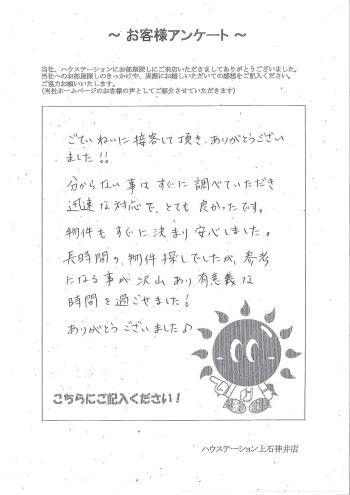 ～ お客様アンケート ～
当社、ハウステーションにお部屋探しにご来店いただきましてありがとうございました。
当社へのお部屋探しのきっかけや、実際にお越しいただいての感想をご記入ください。
ご協力お願いいたします。
(当社ホームページのお客様の声としてご紹介させていただきます)
ごていねいに接客して頂き、ありがとうござい
ました!!
分からない事はすぐに調べていただき
迅速な対応で、とても良かったです。
物件もすぐに決まり安心しました。
長時間の、物件探しでしたが、参考
になる事が沢山あり有意義な
時間を過ごせました!
ありがとうございました♪
こちらにご記入ください!
ハウステーション上石神井店